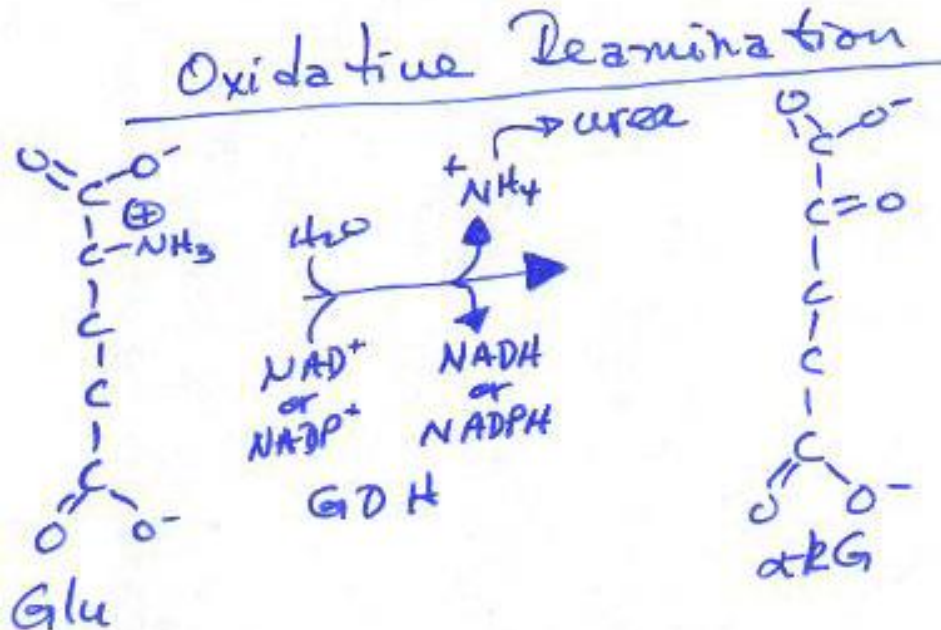 Oxidative Deamination
O O⁻
C
⊕
C-NH3
C
C
C
O O⁻
Glu
H2O
NAD⁺
or
NADP⁺
⁺NH4
urea
NADH
or
NADPH
GDH
O O⁻
C
C=O
C
C
C
O O⁻
αkG